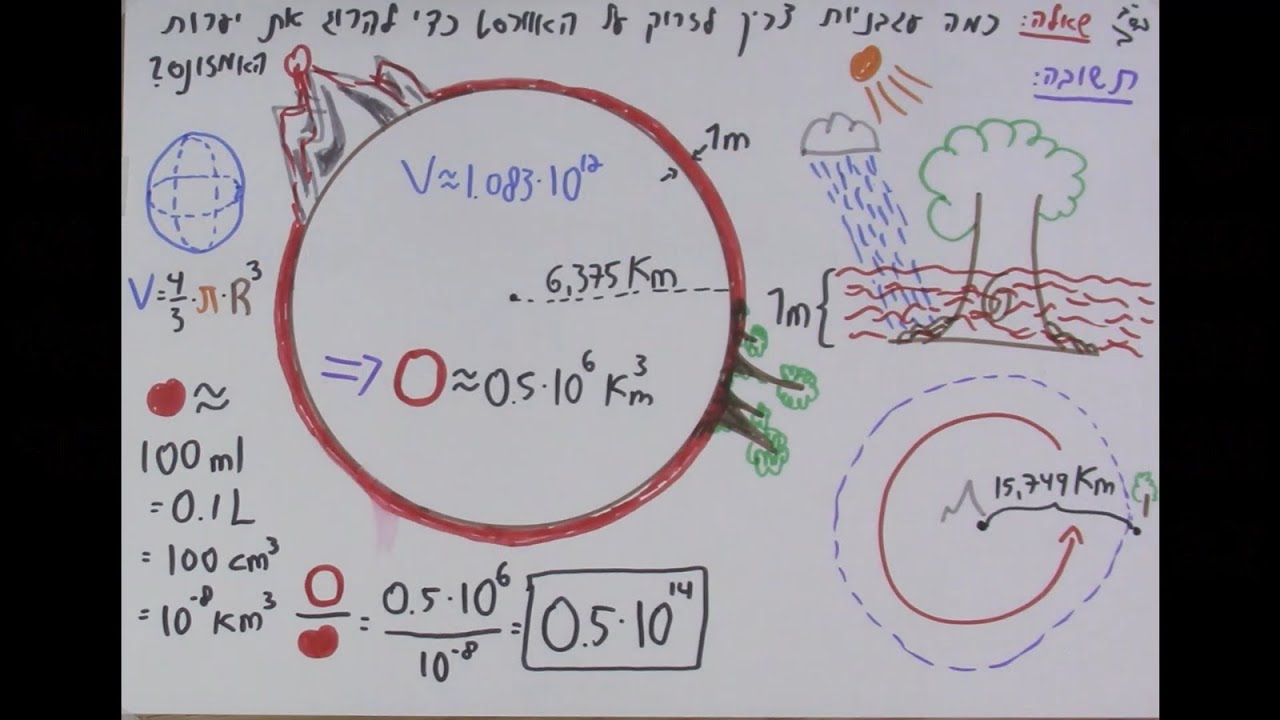 בס"ד שאלה: כמה עגבניות צריך לזרוק על האוורסט כדי להרוג את יערות
האמזונס?
תשובה:
1m
V≈1.083·10¹²
6,375 Km
V=4/3·π·R³
1m
⇒ O ≈ 0.5·10⁶ Km³
≈
100 ml
= 0.1 L
= 100 cm³
= 10⁻⁸ Km³
= 0.5·10⁶ / 10⁻⁸ = 0.5·10¹⁴
15,749 Km